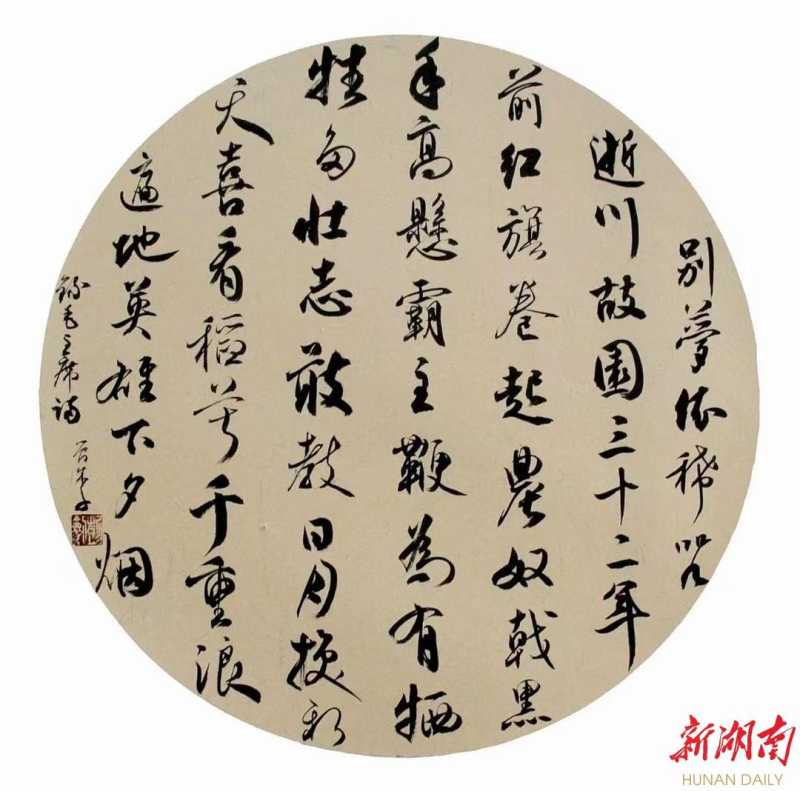 别夢依稀咒
逝川故園三十二年
前红旗卷起農奴戟黑
手高懸霸主鞭為有牺
牲多壮志敢教日月换新
天喜看稻菽千重浪
遍地英雄下夕烟
錄毛主席诗
新湖南
HUNAN DAILY